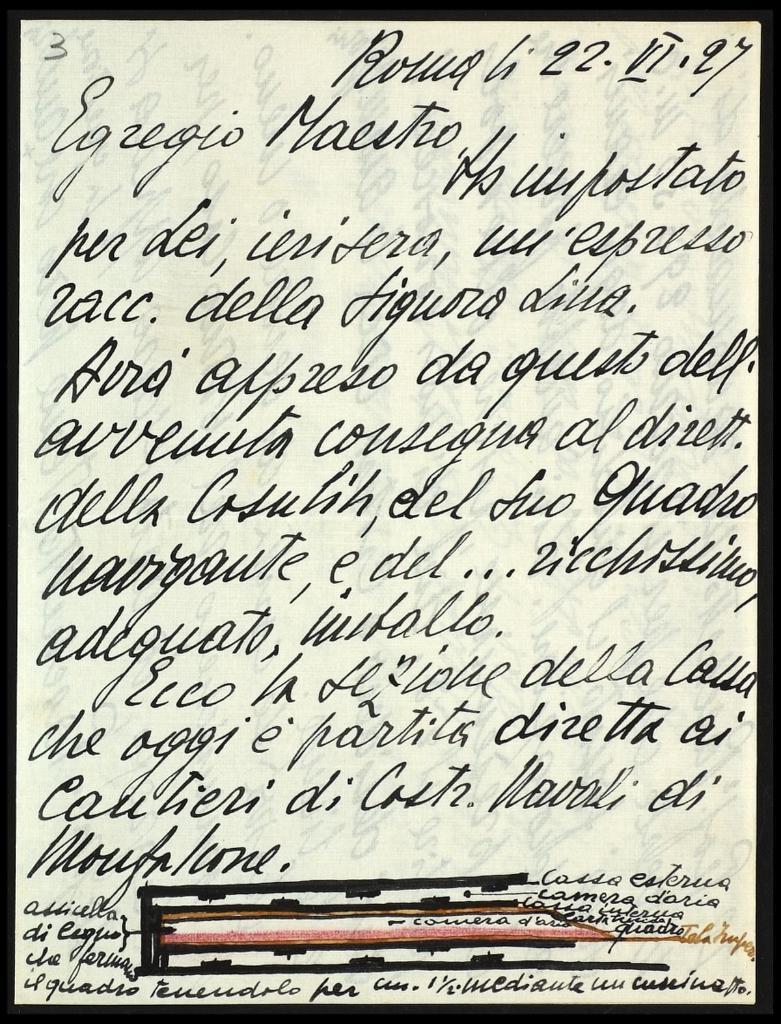 3
Roma li 22.VI.27
Egregio Maestro,
Ho impostato
per Lei, ieri sera, un'espresso
racc. della Signora Lina.
Avrà appreso da questo dell'
avvenuta consegna al dirett.
della Cosulih, del suo Quadro
navigante, e del ... ricchissimo,
adeguato, imballo.
Ecco la sezione della Cassa
che oggi è partita diretta ai
Cantieri di Costr. Navali di
Monfalcone.
Cassa esterna
camera d'aria
cassa interna
camera d'aria
quadro
Tela
assicella
di legno
che ferma
il quadro tenendolo per cm. 1½ mediante un cuscinetto.